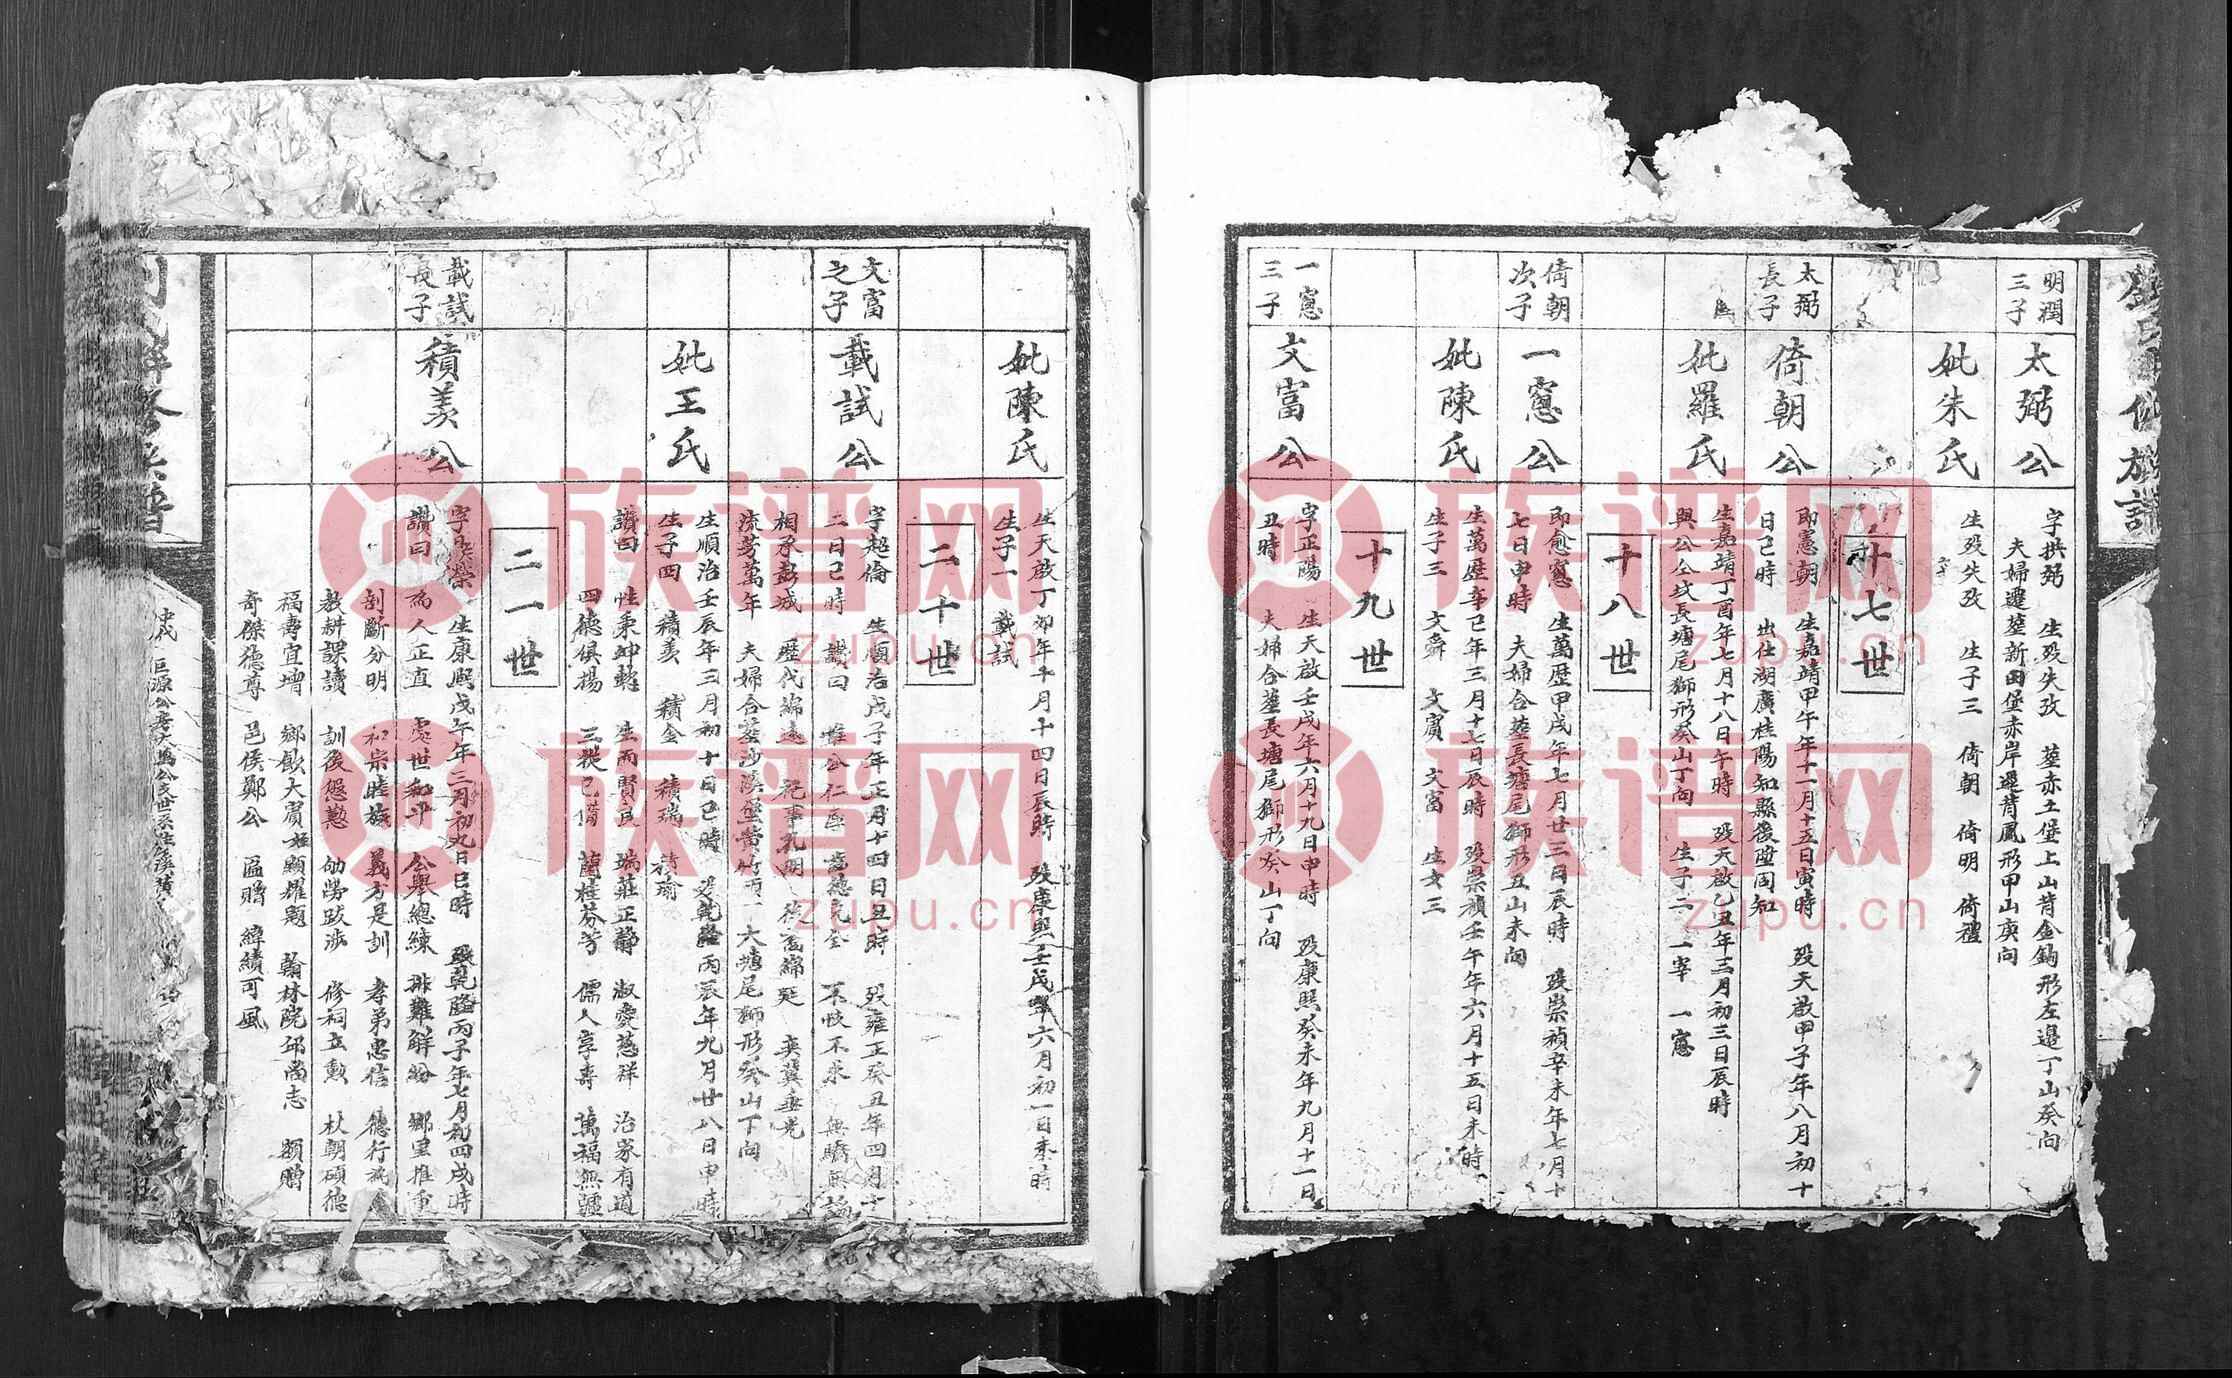 明潤
三子
太弼公
字拱弼　生歿失攷　塟赤土堡上山背金鈎形左邉丁山癸向
夫婦遷塟新田堡赤岸邊背鳳形甲山庚向
妣朱氏
生歿失攷　生子三　倚朝　倚明　倚禮
十七世
太弼
長子
倚朝公
即憲朝　生嘉靖甲午年十一月十五日寅時　歿天啟甲子年八月初十
日己時　出仕湖廣桂陽知縣後陞同知
妣羅氏
生嘉靖丁酉年七月十八日午時　歿天啟乙丑年三月初三日辰時
與公仝坟長塘尾獅形癸山丁向　生子二　一宰　一窻
十八世
倚朝
次子
一窻公
即愈窻　生萬歷甲戌年七月廿三日辰時　歿崇禎辛未年七月十
七日申時　夫婦合塟長塘尾獅形丑山未向
妣陳氏
生萬歷辛己年三月十七日辰時　歿崇禎壬午年六月十五日未時
生子三　文舜　文賓　文富　生女三
十九世
一窻
三子
文富公
字正陽　生天啟壬戌年六月十九日申時　歿康熙癸未年九月十一日
丑時　夫婦合塟長塘尾獅形癸山丁向
妣陳氏
生天啟丁卯年十月十四日辰時　歿康熙壬戌年六月初一日未時
生子一　載試
二十世
文富
之子
載試公
字超倫　生順治戊子年正月十四日丑時　歿雍正癸丑年四月十
二日己時　讚曰　惟公仁厚　富德完全　不忮不求　無驕無諂
相承彭城　歷代綿遠　祀事孔明　後裔綿延　奕冀垂光
流芳萬年　夫婦合塟沙溪堡黄竹頂大塘尾獅形癸山丁向
妣王氏
生順治壬辰年三月初十日己時　歿乾隆丙辰年九月廿八日申時
生子四　積美　積金　積瑞　積瑜
讚曰　性秉坤乾　生而賢良　端莊正静　淑愛慈祥　治家有道
四德俱揚　三從已備　蘭桂芬芳　儒人享壽　萬福無疆
二一世
載試
長子
積美公
生康熙戊午年三月初九日巳時　歿乾隆丙子年七月初四戌時
讚曰　為人正直　處世和平　公舉總練　排難解紛　鄉里推重
剖斷分明　和宗睦族　義方是訓　孝弟忠信　德行
教耕課讀　訓後慇懃　劬勞跋涉　修祠立勲　杖朝碩德
福壽宜增　鄉飲大賓　顯耀題　翰林院邱尚志　額贈
奇傑德尊　邑侯鄭公　區贈　緯績可風